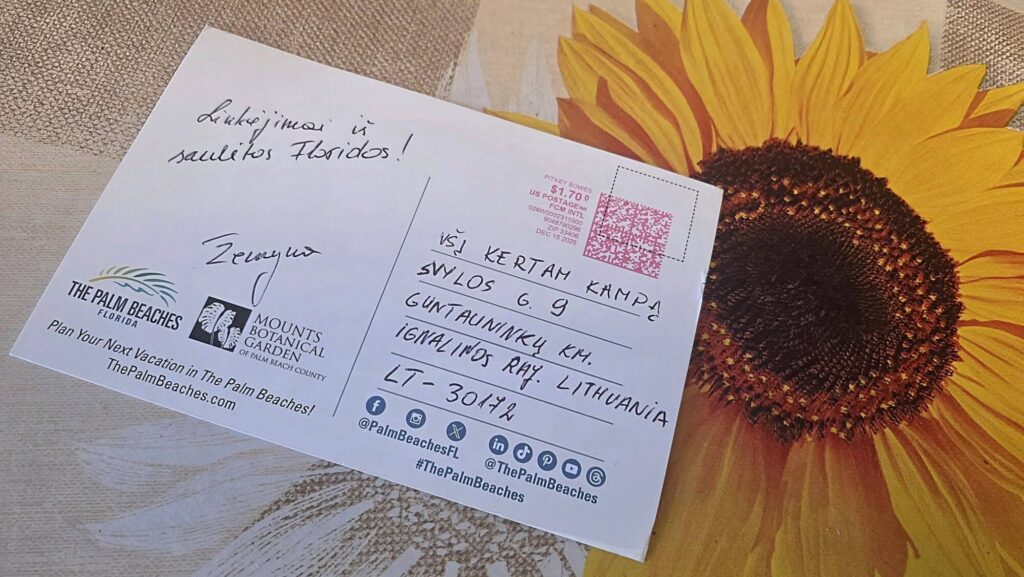 Linkėjimai iš
saulėtos Floridos!
Žemyna
THE PALM BEACHES
FLORIDA
MOUNTS
BOTANICAL
GARDEN
OF PALM BEACH COUNTY
Plan Your Next Vacation in The Palm Beaches!
ThePalmBeaches.com
PITNEY BOWES
$1.70⁰
US POSTAGE
FCM INTL
028W0002310300
9048790298
ZIP 33406
DEC 15 2025
VŠĮ KERTAM KAMPĄ
SVYLOS G. 9
GUNTAUNINKŲ KM.
IGNALINOS RAJ. LITHUANIA
LT-30172
@PalmBeachesFL
@ThePalmBeaches
#ThePalmBeaches